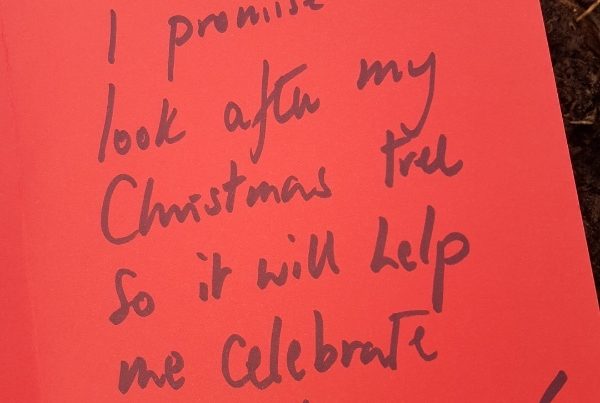 I promise
look after my
Christmas tree
so it will help
me celebrate